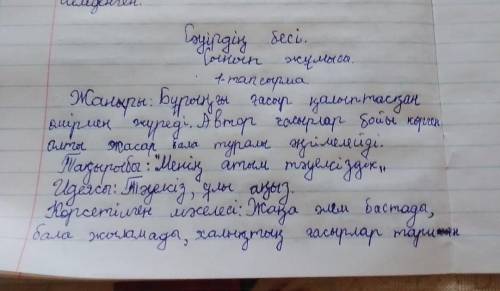 Сәуірдің бесі.
Сынып жұмысы.
1-тапсырма
Жанры: Бұрынғы ғасыр қалыптасқан
өмірмен жүреді. Автор ғасырлар бойы көрген
алты жасар бала туралы әңгімелейді.
Тақырыбы: "Менің атым тәуелсіздік"
Идеясы: Тәуелсіз, ұлы аңыз.
Көрсетілген мәселесі: Жаңа әлем бастады,
бала жыламады, халықтың ғасырлар